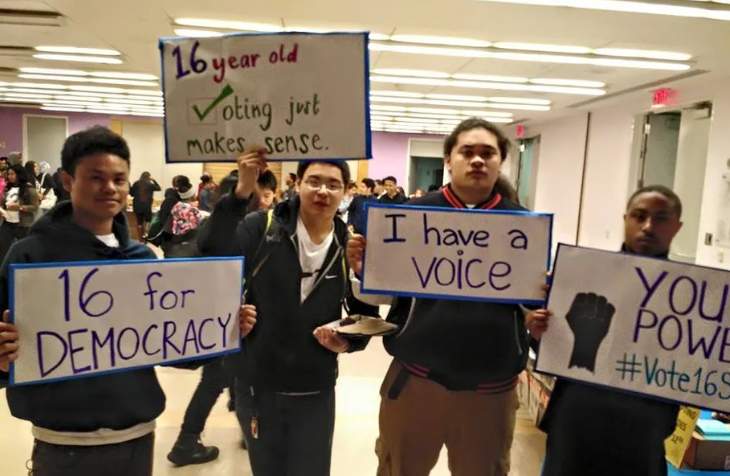 16 year old
✓oting just
makes sense.
16 for
DEMOCRACY
I have a
VOICE
YOU
POWE
#Vote16S